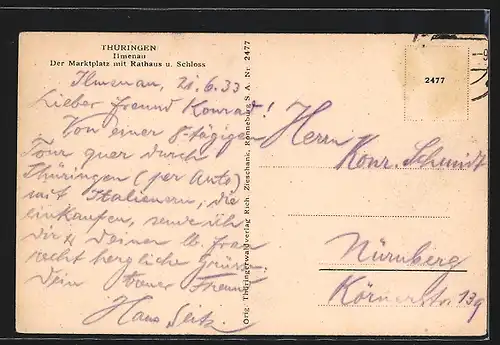 THÜRINGEN
Ilmenau
Der Marktplatz mit Rathaus u. Schloss
Ilmenau, 21.6.33
Lieber Freund Konrad!
Von einer 8-tägigen
Tour quer durch
Thüringen (per Auto)
mit Italienern, die
einkaufen, sende ich
dir u. deiner lb. Frau
recht herzliche Grüße.
Dein Freund
Hans Seitz
Orig. Thüringerwaldverlag Rich. Zieschank, Ronneburg S.A. Nr. 2477
2477
Herrn
Konr. Schmidt
Nürnberg
Körnerstr. 139